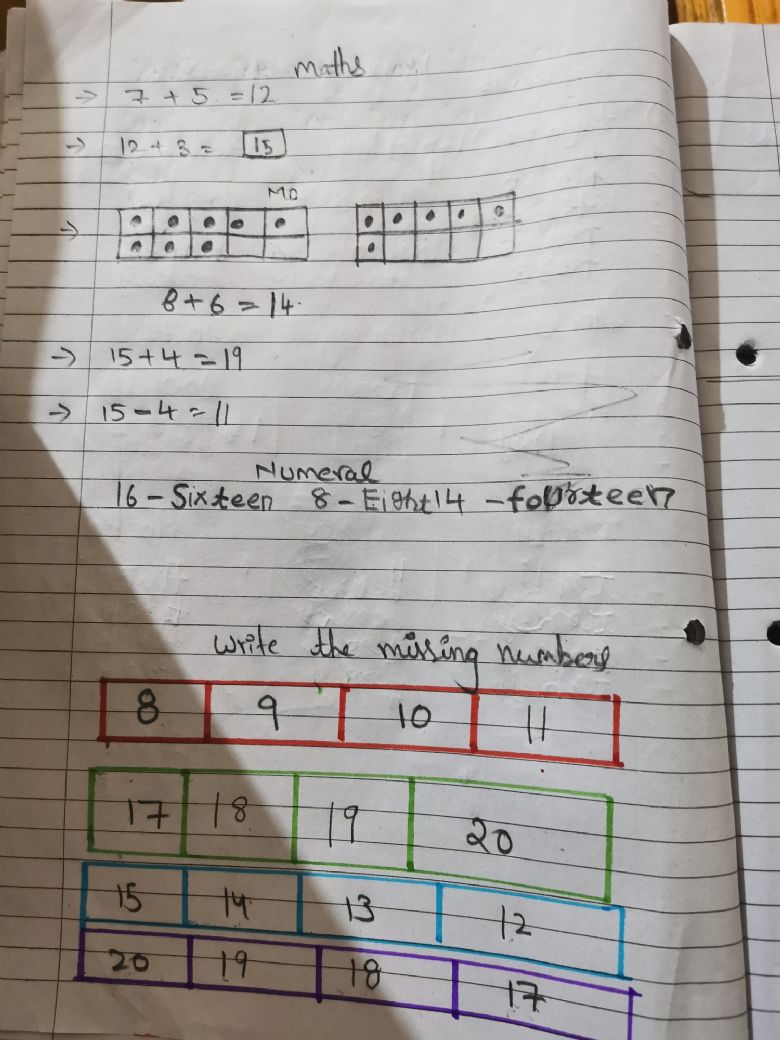 maths
→ 7 + 5 = 12
→ 12 + 3 = 15
MO
→
8 + 6 = 14.
→ 15 + 4 = 19
→ 15 - 4 = 11
Numeral
16 - Sixteen 8 - Eight 14 - fourteen
Write the missing numbers
8 9 10 11
17 18 19 20
15 14 13 12
20 19 18 17